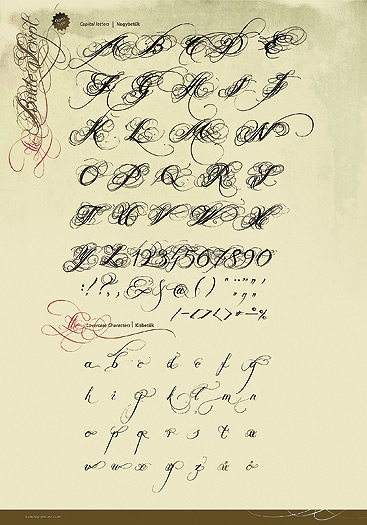 Capital letters | Nagybetűk
A B C D E
F G H I J
K L M N
O P Q R S
T U V W X
Y Z 1234567890
: ! ? & § @ ( )
The
Lowercase Characters | Kisbetűk
a b c d e f g
h i j k l m n
o p q r s t u
v w x y z